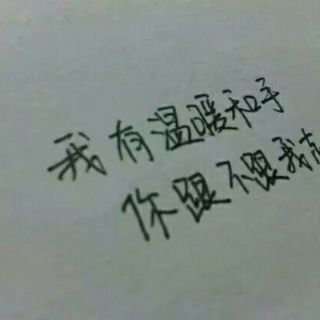 我有温暖和手
你跟不跟我走